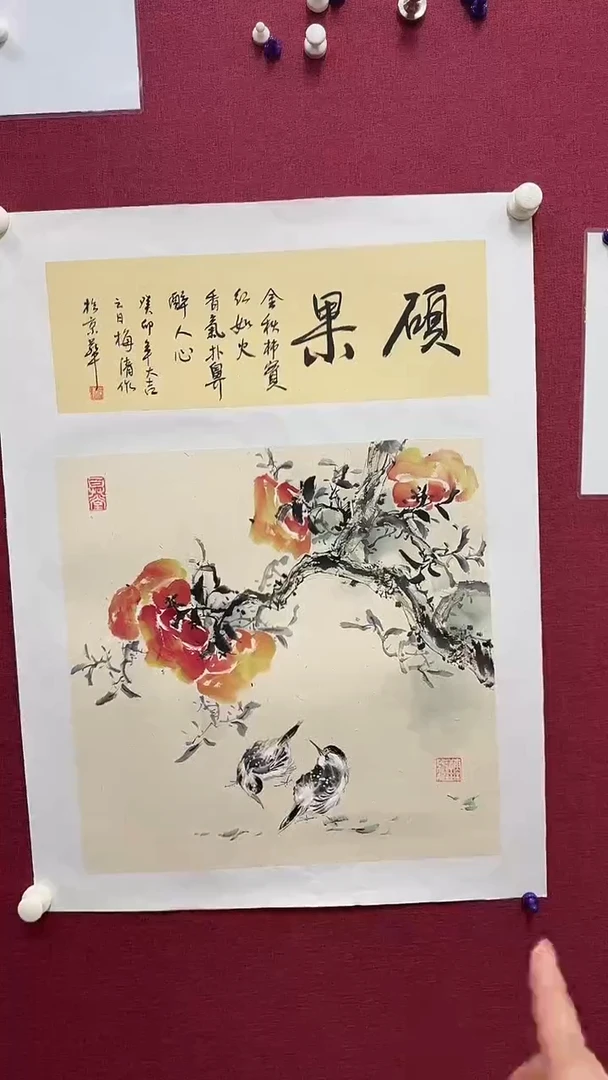 硕果
金秋柿實
红如火
香氣扑鼻
醉人心
癸卯年大吉
之日梅清作
於京華